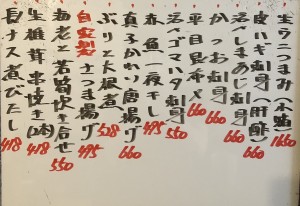 生ウニつまみ(本〆) 1650
皮ハギ刺身(肝醤) 660
活〆しまあじ刺身 660
かつお刺身 660
平目昆布〆 660
活〆ゴマハタ刺身 550
赤魚一夜干し 495
真子かれい唐揚げ 660
ぶりと大根煮 528
自家製さつま揚げ 495
海老と若筍炊き合せ 550
生椎茸串焼き(2本) 418
長ナス煮びたし 418